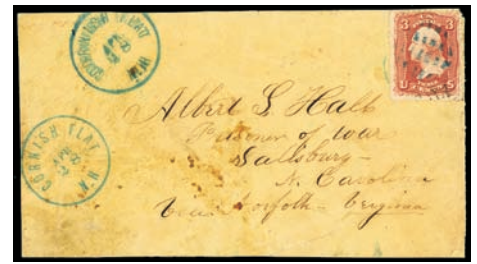 CORNISH FLAT N.H.
APR
8
CORNISH FLAT N.H.
APR
8
3 3
U S
Albert L Hall
Prisoner of war
Sallsbury –
N. Carolina
Via Norfolk – Verginia